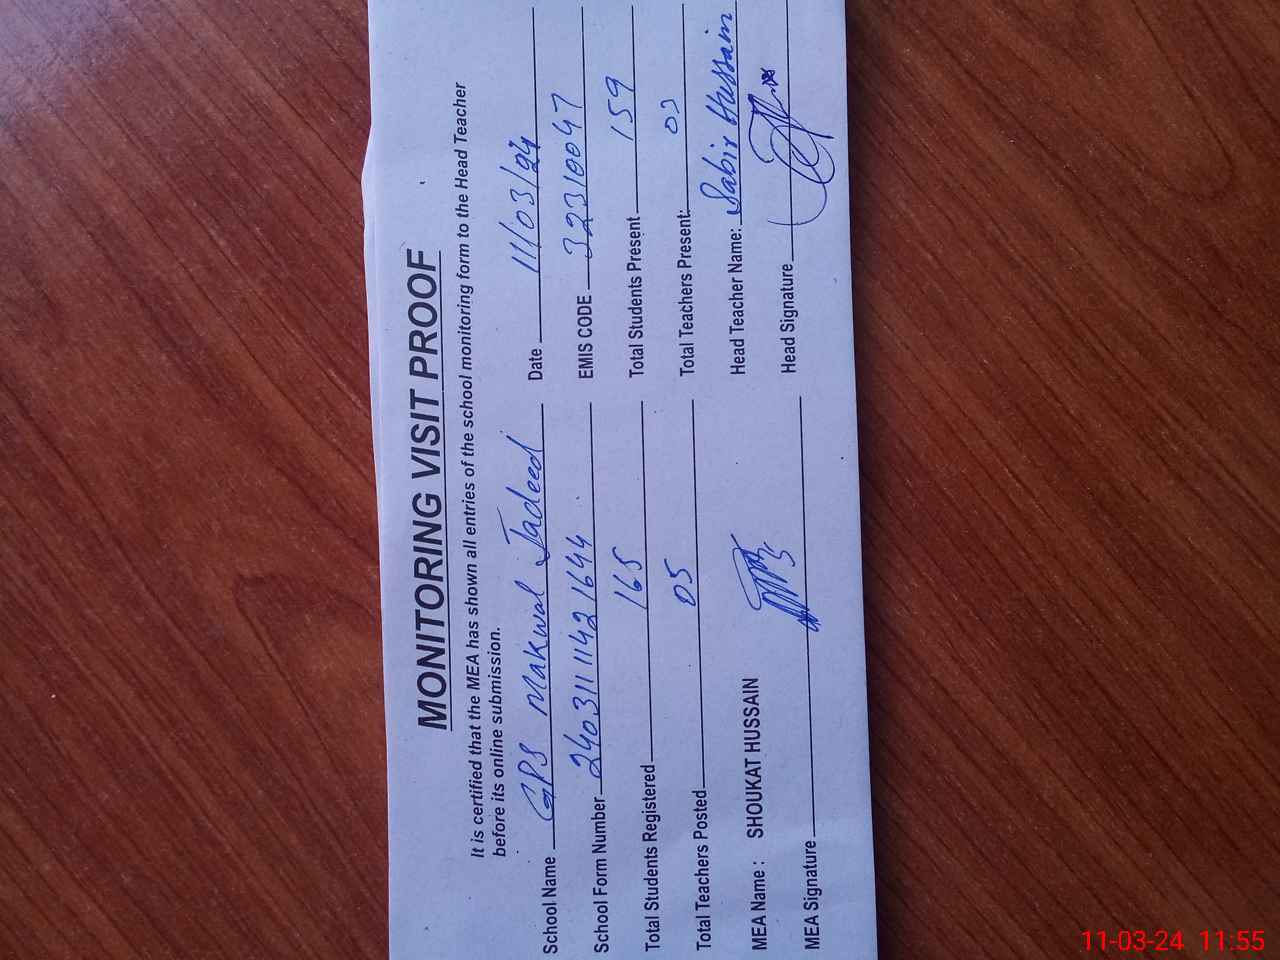 MONITORING VISIT PROOF
It is certified that the MEA has shown all entries of the school monitoring form to the Head Teacher
before its online submission.
School Name GPS Makwal Jadeed Date 11/03/24
School Form Number 24031111421644 EMIS CODE 32310047
Total Students Registered 165 Total Students Present 159
Total Teachers Posted 05 Total Teachers Present: 03
MEA Name : SHOUKAT HUSSAIN Head Teacher Name: Sabir Hussain
MEA Signature Head Signature
11-03-24 11:55